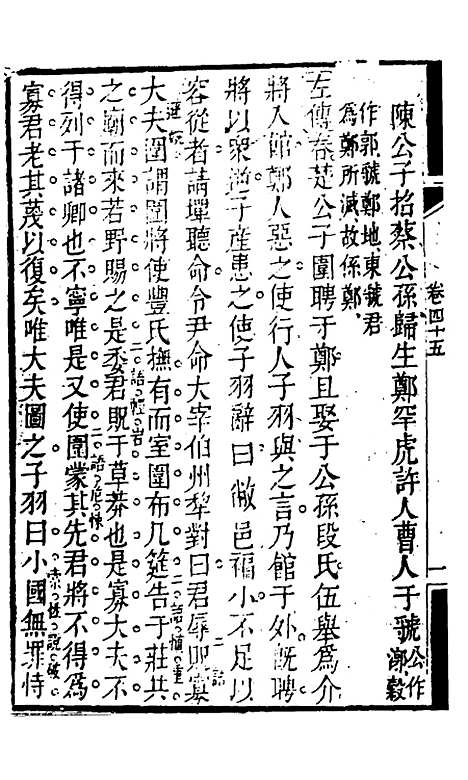 陳公子招蔡公孫歸生鄭罕虎許人曹人于虢公作漷穀
作郭虢鄭地東虢君
爲鄭所滅故係鄭
左傳春楚公子圍聘于鄭且娶于公孫段氏伍舉爲介
將入館鄭人惡之使行人子羽與之言乃館于外既聘
將以衆逆子產患之使子羽辭曰敝邑褊小不足以
容從者請墠聽命令尹命大宰伯州犂對曰君辱貺寡
大夫圍謂圍將使豐氏撫有而室圍布几筵告于莊共
之廟而來若野賜之是委君貺于草莽也是寡大夫不
得列于諸卿也不寧唯是又使圍蒙其先君將不得爲
寡君老其蔑以復矣唯大夫圖之子羽曰小國無罪恃
卷四十五
一